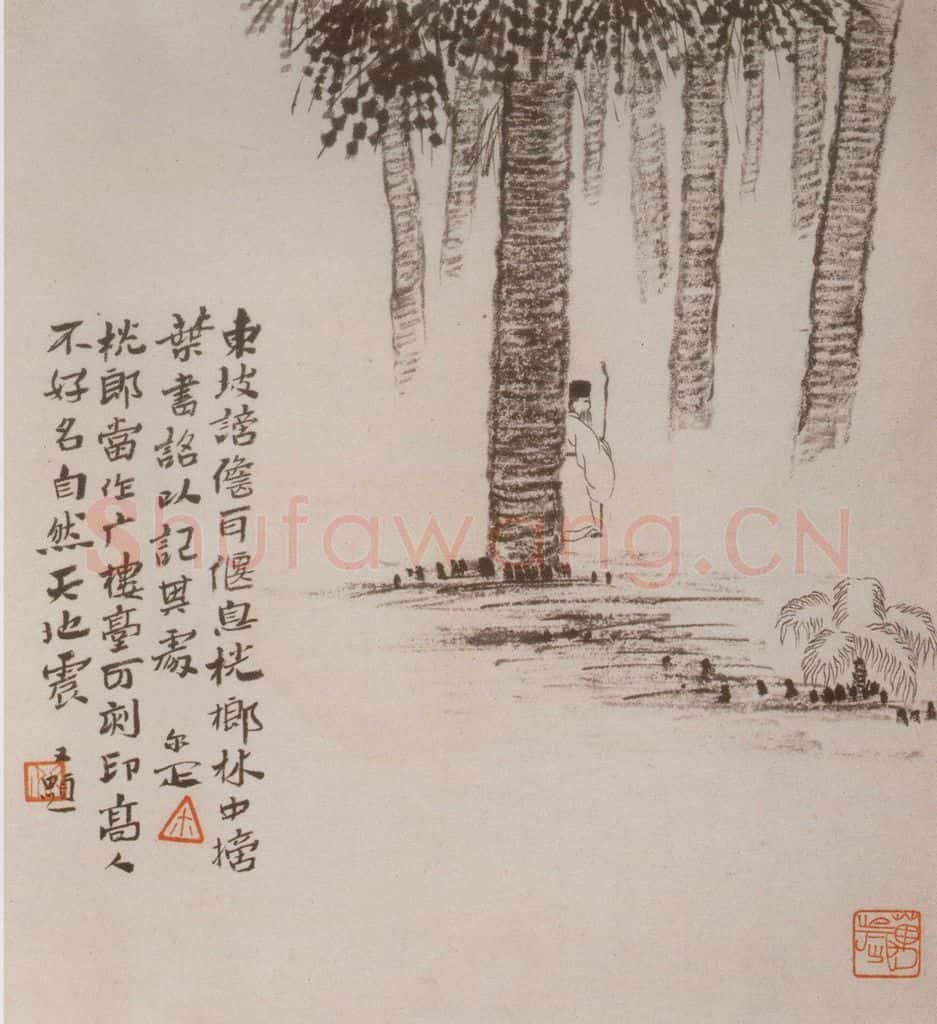 東坡謫儋耳偃息桄榔林中摘
葉書銘以記其處 尔疋
桄郎當作广樓臺可刻印高人
不好名自然天地震 又題
Shufawang.CN